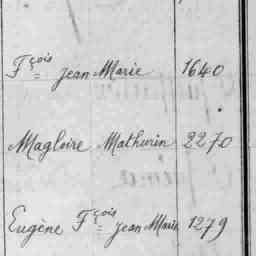 Fçois Jean Marie 1640
Magloire Mathurin 2270
Eugène Fçois Jean Marie 1279